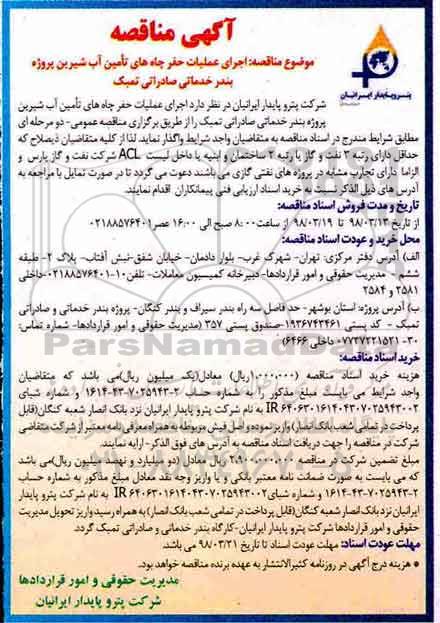 آگهی مناقصه
موضوع مناقصه: اجرای عملیات حفر چاه های تأمین آب شیرین پروژه
بندر خدماتی صادراتی تمبک
پتروپایدار ایرانیان
شرکت پترو پایدار ایرانیان در نظر دارد اجرای عملیات حفر چاه های تأمین آب شیرین
پروژه بندر خدماتی صادراتی تمبک را از طریق برگزاری مناقصه عمومی- دو مرحله ای
مطابق شرایط مندرج در اسناد مناقصه به متقاضیان واجد شرایط واگذار نماید. لذا از کلیه متقاضیان ذیصلاح که
حداقل دارای رتبه ۳ نفت و گاز یا رتبه ۲ ساختمان و ابنیه یا داخل لیست ACL شرکت نفت و گاز پارس و
الزاما دارای تجارب مشابه در پروژه های نفتی گازی می باشند، دعوت می گردد تا در صورت تمایل با مراجعه به
آدرس های ذیل الذکر نسبت به خرید اسناد ارزیابی فنی پیمانکاران اقدام نمایند.
تاریخ و مدت فروش اسناد مناقصه:
از تاریخ ۹۸/۰۳/۱۲ تا ۹۸/۰۳/۱۹ از ساعت ۸:۰۰ صبح الی ۱۶:۰۰ عصر ۰۲۱۸۸۵۷۶۴۰۱
محل خرید و عودت اسناد مناقصه:
الف) آدرس دفتر مرکزی: تهران- شهرک غرب- بلوار دادمان- خیابان شفق-نبش آفتاب- پلاک ۲- طبقه
ششم - مدیریت حقوقی و امور قراردادها- دبیرخانه کمیسیون معاملات- تلفن ۱۰-۰۲۱۸۸۵۷۶۴۰۱-داخلی
۲۵۸۱ و ۲۵۸۴
ب) آدرس پروژه: استان بوشهر- حد فاصل سه راه بندر سیراف و بندر کنگان- پروژه بندر خدماتی و صادراتی
تمبک - کد پستی ۱۹۳۶۷۴۳۴۶۱-صندوق پستی ۳۵۷ (مدیریت حقوقی و امور قراردادها- شماره تماس:
۳۰-۰۷۷۳۷۲۲۱۵۲۱ داخلی ۶۴۶۶)
خرید اسناد مناقصه:
هزینه خرید اسناد مناقصه (۱،۰۰۰،۰۰۰ریال) معادل(یک میلیون ریال)می باشد که متقاضیان
واجد شرایط می بایست مبلغ مذکور را به شماره حساب ۲-۷۰۲۵۹۴۳-۴۳-۱۶۱۴ و شماره شبای
IR ۶۴۰۶۳۰۱۶۱۴۰۴۳۰۷۰۲۵۹۴۳۰۰۲ به نام شرکت پترو پایدار ایرانیان نزد بانک انصار شعبه کنگان(قابل
پرداخت در تمامی شعب بانک انصار) واریز نموده و اصل فیش مربوطه به همراه معرفی نامه معتبر از شرکت متقاضی
شرکت در مناقصه را جهت دریافت اسناد مناقصه به آدرس های فوق الذکر- ارایه نمایند.
مبلغ تضمین شرکت در مناقصه ۲،۹۰۰،۰۰۰،۰۰۰ ریال معادل (دو میلیارد و نهصد میلیون ریال)می باشد
که می بایست به صورت ضمانت نامه معتبر بانکی و یا واریز وجه نقد معادل مبلغ مذکور به شماره حساب
۲-۷۰۲۵۹۴۳-۴۳-۱۶۱۴ و شماره شبای IR ۶۴۰۶۳۰۱۶۱۴۰۴۳۰۷۰۲۵۹۴۳۰۰۲ به نام شرکت پترو پایدار
ایرانیان نزد بانک انصار شعبه کنگان(قابل پرداخت در تمامی شعب بانک انصار) به همراه رسید واریز تحویل مدیریت
حقوقی و امور قراردادها شرکت پترو پایدار ایرانیان-کارگاه بندر خدماتی و صادراتی تمبک گردد.
مهلت عودت اسناد: مهلت عودت اسناد تا تاریخ ۹۸/۰۳/۲۱ می باشد.
* هزینه درج آگهی در روزنامه کثیرالانتشار به عهده برنده مناقصه خواهد بود.
مدیریت حقوقی و امور قراردادها
شرکت پترو پایدار ایرانیان
ParsNamadData